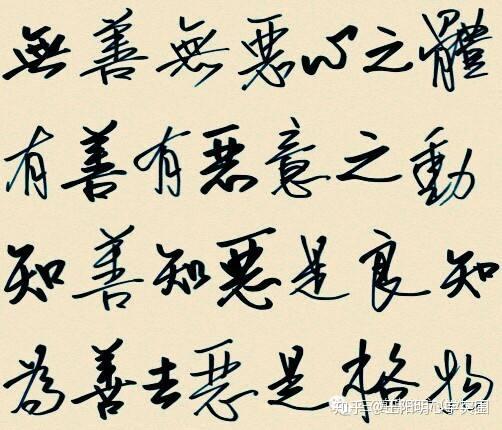 無善無惡心之體
有善有惡意之動
知善知惡是良知
為善去惡是格物
知乎 @王阳明心学